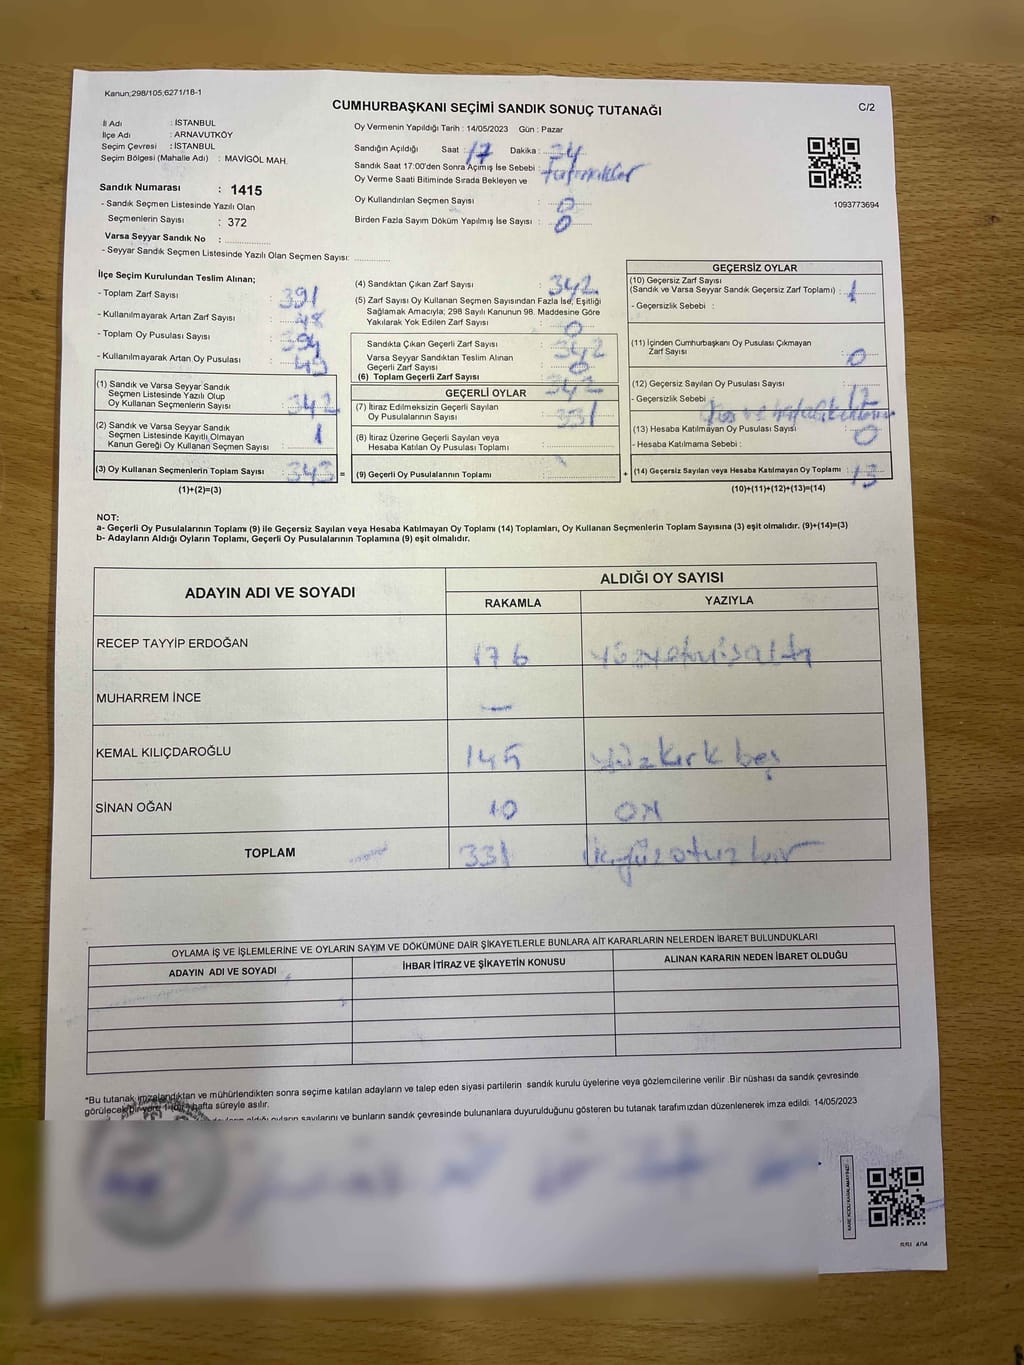 Kanun;298/105;6271/18-1
CUMHURBAŞKANI SEÇİMİ SANDIK SONUÇ TUTANAĞI
C/2
İl Adı : İSTANBUL
İlçe Adı : ARNAVUTKÖY
Seçim Çevresi : İSTANBUL
Seçim Bölgesi (Mahalle Adı) : MAVİGÖL MAH.
Sandık Numarası : 1415
- Sandık Seçmen Listesinde Yazılı Olan
Seçmenlerin Sayısı : 372
Varsa Seyyar Sandık No :
- Seyyar Sandık Seçmen Listesinde Yazılı Olan Seçmen Sayısı:
Oy Vermenin Yapıldığı Tarih : 14/05/2023 Gün : Pazar
Sandığın Açıldığı Saat : 17 Dakika :
Sandık Saat 17:00'den Sonra Açılmış İse Sebebi :
Oy Verme Saati Bitiminde Sırada Bekleyen ve
Oy Kullandırılan Seçmen Sayısı : 0
Birden Fazla Sayım Döküm Yapılmış İse Sayısı : 0
1093773694
İlçe Seçim Kurulundan Teslim Alınan;
- Toplam Zarf Sayısı : 391
- Kullanılmayarak Artan Zarf Sayısı : 48
- Toplam Oy Pusulası Sayısı : 394
- Kullanılmayarak Artan Oy Pusulası :
(1) Sandık ve Varsa Seyyar Sandık
Seçmen Listesinde Yazılı Olup
Oy Kullanan Seçmenlerin Sayısı : 342
(2) Sandık ve Varsa Seyyar Sandık
Seçmen Listesinde Kayıtlı Olmayan
Kanun Gereği Oy Kullanan Seçmen Sayısı : 1
(3) Oy Kullanan Seçmenlerin Toplam Sayısı : 343 =
(1)+(2)=(3)
(4) Sandıktan Çıkan Zarf Sayısı : 342
(5) Zarf Sayısı Oy Kullanan Seçmen Sayısından Fazla İse, Eşitliği
Sağlamak Amacıyla; 298 Sayılı Kanunun 98. Maddesine Göre
Yakılarak Yok Edilen Zarf Sayısı : 0
Sandıkta Çıkan Geçerli Zarf Sayısı : 342
Varsa Seyyar Sandıktan Teslim Alınan
Geçerli Zarf Sayısı : 0
(6) Toplam Geçerli Zarf Sayısı : 342
GEÇERLİ OYLAR
(7) İtiraz Edilmeksizin Geçerli Sayılan
Oy Pusulalarının Sayısı : 331
(8) İtiraz Üzerine Geçerli Sayılan veya
Hesaba Katılan Oy Pusulası Sayısı :
(9) Geçerli Oy Pusulalarının Toplamı : +
GEÇERSİZ OYLAR
(10) Geçersiz Zarf Sayısı
(Sandık ve Varsa Seyyar Sandık Geçersiz Zarf Toplamı) : 1
- Geçersizlik Sebebi :
(11) İçinden Cumhurbaşkanı Oy Pusulası Çıkmayan
Zarf Sayısı : 0
(12) Geçersiz Sayılan Oy Pusulası Sayısı : 12
- Geçersizlik Sebebi :
(13) Hesaba Katılmayan Oy Pusulası Sayısı : 0
- Hesaba Katılmama Sebebi :
(14) Geçersiz Sayılan veya Hesaba Katılmayan Oy Toplamı : 13
(10)+(11)+(12)+(13)=(14)
NOT:
a- Geçerli Oy Pusulalarının Toplamı (9) ile Geçersiz Sayılan veya Hesaba Katılmayan Oy Toplamı (14) Toplamları, Oy Kullanan Seçmenlerin Toplam Sayısına (3) eşit olmalıdır. (9)+(14)=(3)
b- Adayların Aldığı Oyların Toplamı, Geçerli Oy Pusulalarının Toplamına (9) eşit olmalıdır.
ADAYIN ADI VE SOYADI ALDIĞI OY SAYISI
RAKAMLA YAZIYLA
RECEP TAYYİP ERDOĞAN 176
MUHARREM İNCE —
KEMAL KILIÇDAROĞLU 145 yüzkırk beş
SİNAN OĞAN 10 ON
TOPLAM 331
OYLAMA İŞ VE İŞLEMLERİNE VE OYLARIN SAYIM VE DÖKÜMÜNE DAİR ŞİKAYETLERLE BUNLARA AİT KARARLARIN NELERDEN İBARET BULUNDUKLARI
ADAYIN ADI VE SOYADI İHBAR İTİRAZ VE ŞİKAYETİN KONUSU ALINAN KARARIN NEDEN İBARET OLDUĞU
*Bu tutanak imzalandıktan ve mühürlendikten sonra seçime katılan adayların ve talep eden siyasi partilerin sandık kurulu üyelerine veya gözlemcilerine verilir .Bir nüshası da sandık çevresinde
görülecek bir yere 1 (bir) hafta süreyle asılır.
oyların sayılarını ve bunların sandık çevresinde bulunanlara duyurulduğunu gösteren bu tutanak tarafımızdan düzenlenerek imza edildi. 14/05/2023